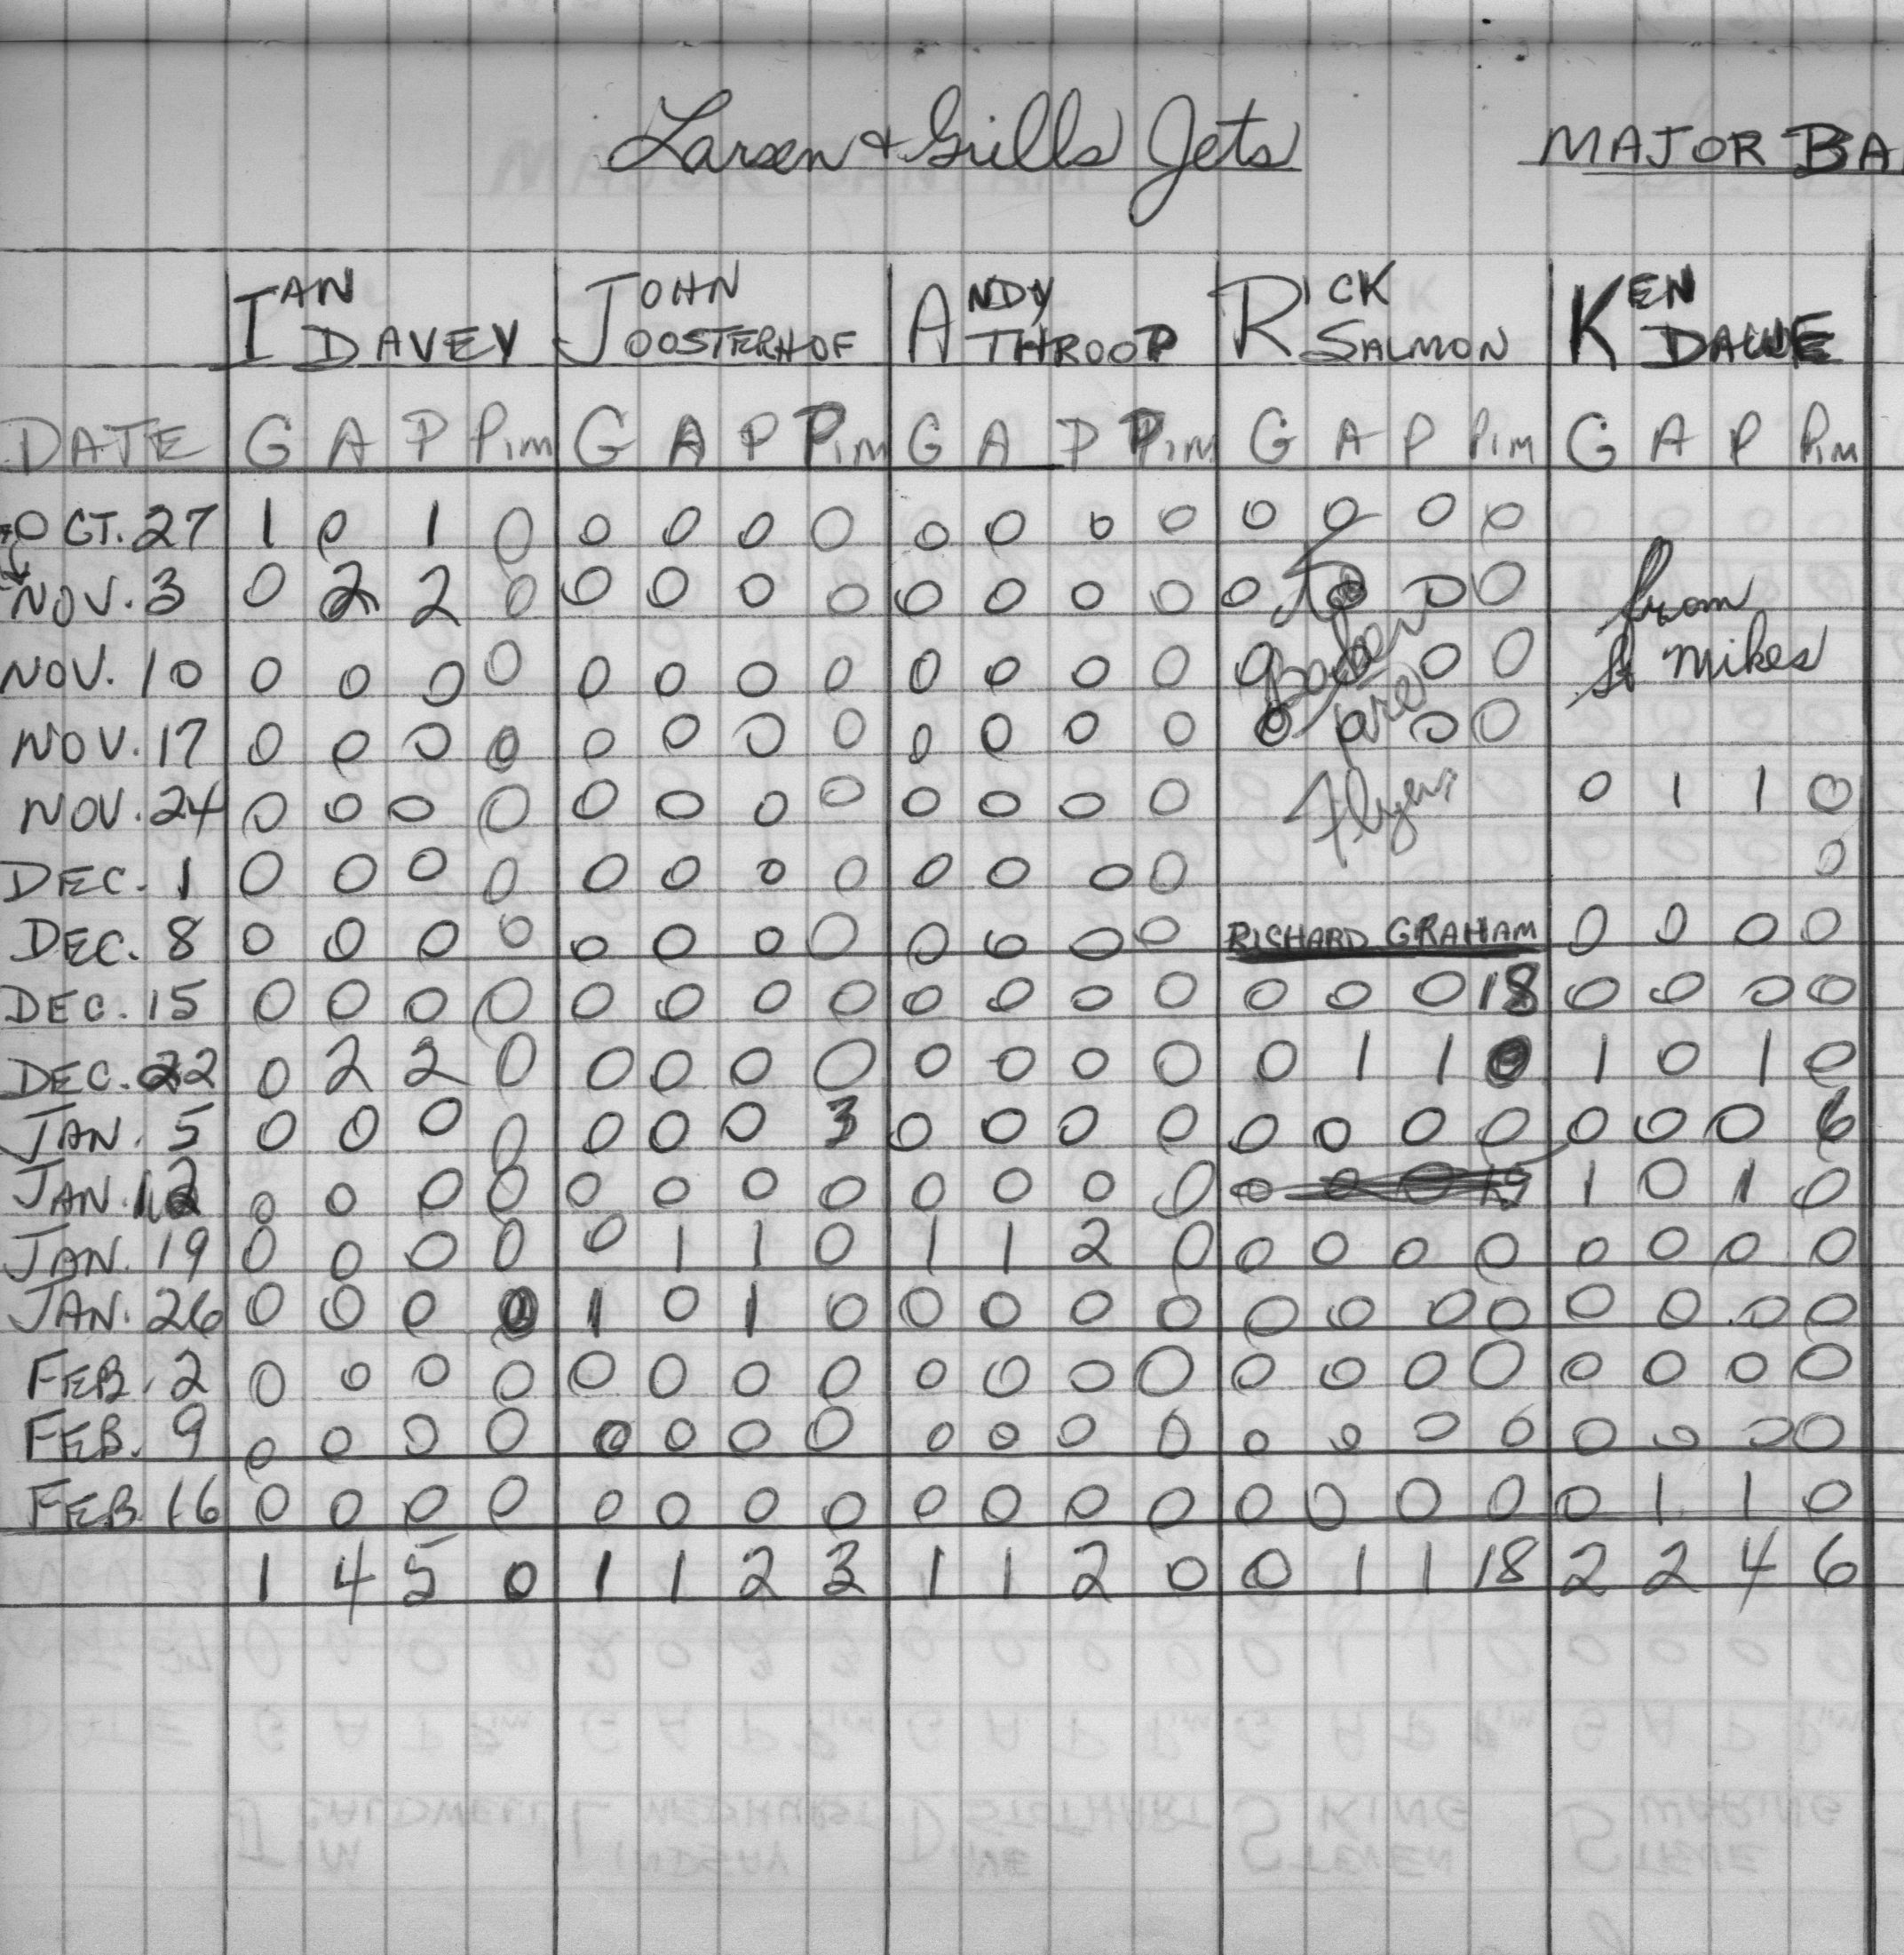 Larsen + Grills Jets MAJOR BA
IAN DAVEY JOHN OOSTERHOF ANDY THROOP RICK SALMON KEN DAWE
DATE G A P Pim G A P Pim G A P Pim G A P Pim G A P Pim
OCT. 27 1 0 1 0 0 0 0 0 0 0 0 0 0 0 0 0
NOV. 3 0 2 2 0 0 0 0 0 0 0 0 0 0 0 0 0 from
NOV. 10 0 0 0 0 0 0 0 0 0 0 0 0 0 0 0 0 St Mikes
NOV. 17 0 0 0 0 0 0 0 0 0 0 0 0 0 0 0 0
NOV. 24 0 0 0 0 0 0 0 0 0 0 0 0 Flyers 0 1 1 0
DEC. 1 0 0 0 0 0 0 0 0 0 0 0 0 0
DEC. 8 0 0 0 0 0 0 0 0 0 0 0 0 RICHARD GRAHAM 0 0 0 0
DEC. 15 0 0 0 0 0 0 0 0 0 0 0 0 0 0 0 18 0 0 0 0
DEC. 22 0 2 2 0 0 0 0 0 0 0 0 0 0 1 1 0 1 0 1 0
JAN. 5 0 0 0 0 0 0 0 3 0 0 0 0 0 0 0 0 0 0 0 6
JAN. 12 0 0 0 0 0 0 0 0 0 0 0 0 0 0 0 1 0 1 0
JAN. 19 0 0 0 0 0 1 1 0 1 1 2 0 0 0 0 0 0 0 0 0
JAN. 26 0 0 0 0 1 0 1 0 0 0 0 0 0 0 0 0 0 0 0 0
FEB. 2 0 0 0 0 0 0 0 0 0 0 0 0 0 0 0 0 0 0 0 0
FEB. 9 0 0 0 0 0 0 0 0 0 0 0 0 0 0 0 0 0 0 0 0
FEB. 16 0 0 0 0 0 0 0 0 0 0 0 0 0 0 0 0 0 1 1 0
1 4 5 0 1 1 2 3 1 1 2 0 0 1 1 18 2 2 4 6